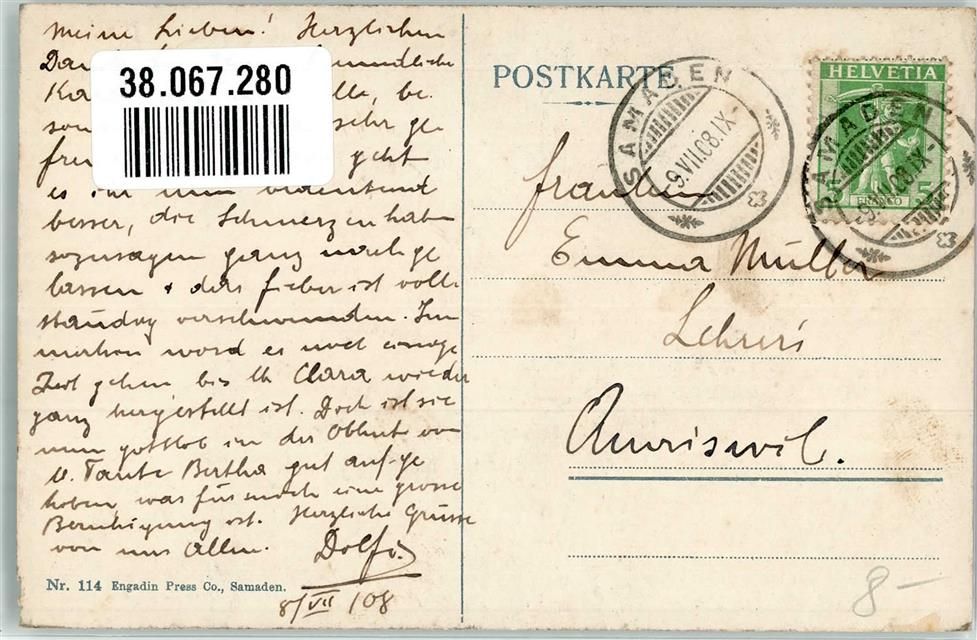 Meine Lieben! Herzlichen
38.067.280
besser, die Schmerzen haben
sozusagen ganz nachge
lassen + das Fieber ist voll
ständig verschwunden. Im
wird es noch einige
Zeit gehen bis lb Clara wieder
ganz hergestellt ist. Doch ist sie
nun gottlob in der Obhut von
u. Tante Bertha gut aufge
hoben was für mich eine grosse
Beruhigung ist. Herzliche Grüsse
von uns Allen. Dolfi.
8/VII/08
Nr. 114 Engadin Press Co., Samaden.
POSTKARTE
SAMADEN
9.VII.08.IX-
HELVETIA
5
FRANCO
5
SAMADEN
9.VII.08.IX-
Fräulein
Emma Müller
Lehrers
Amriswil.
8-